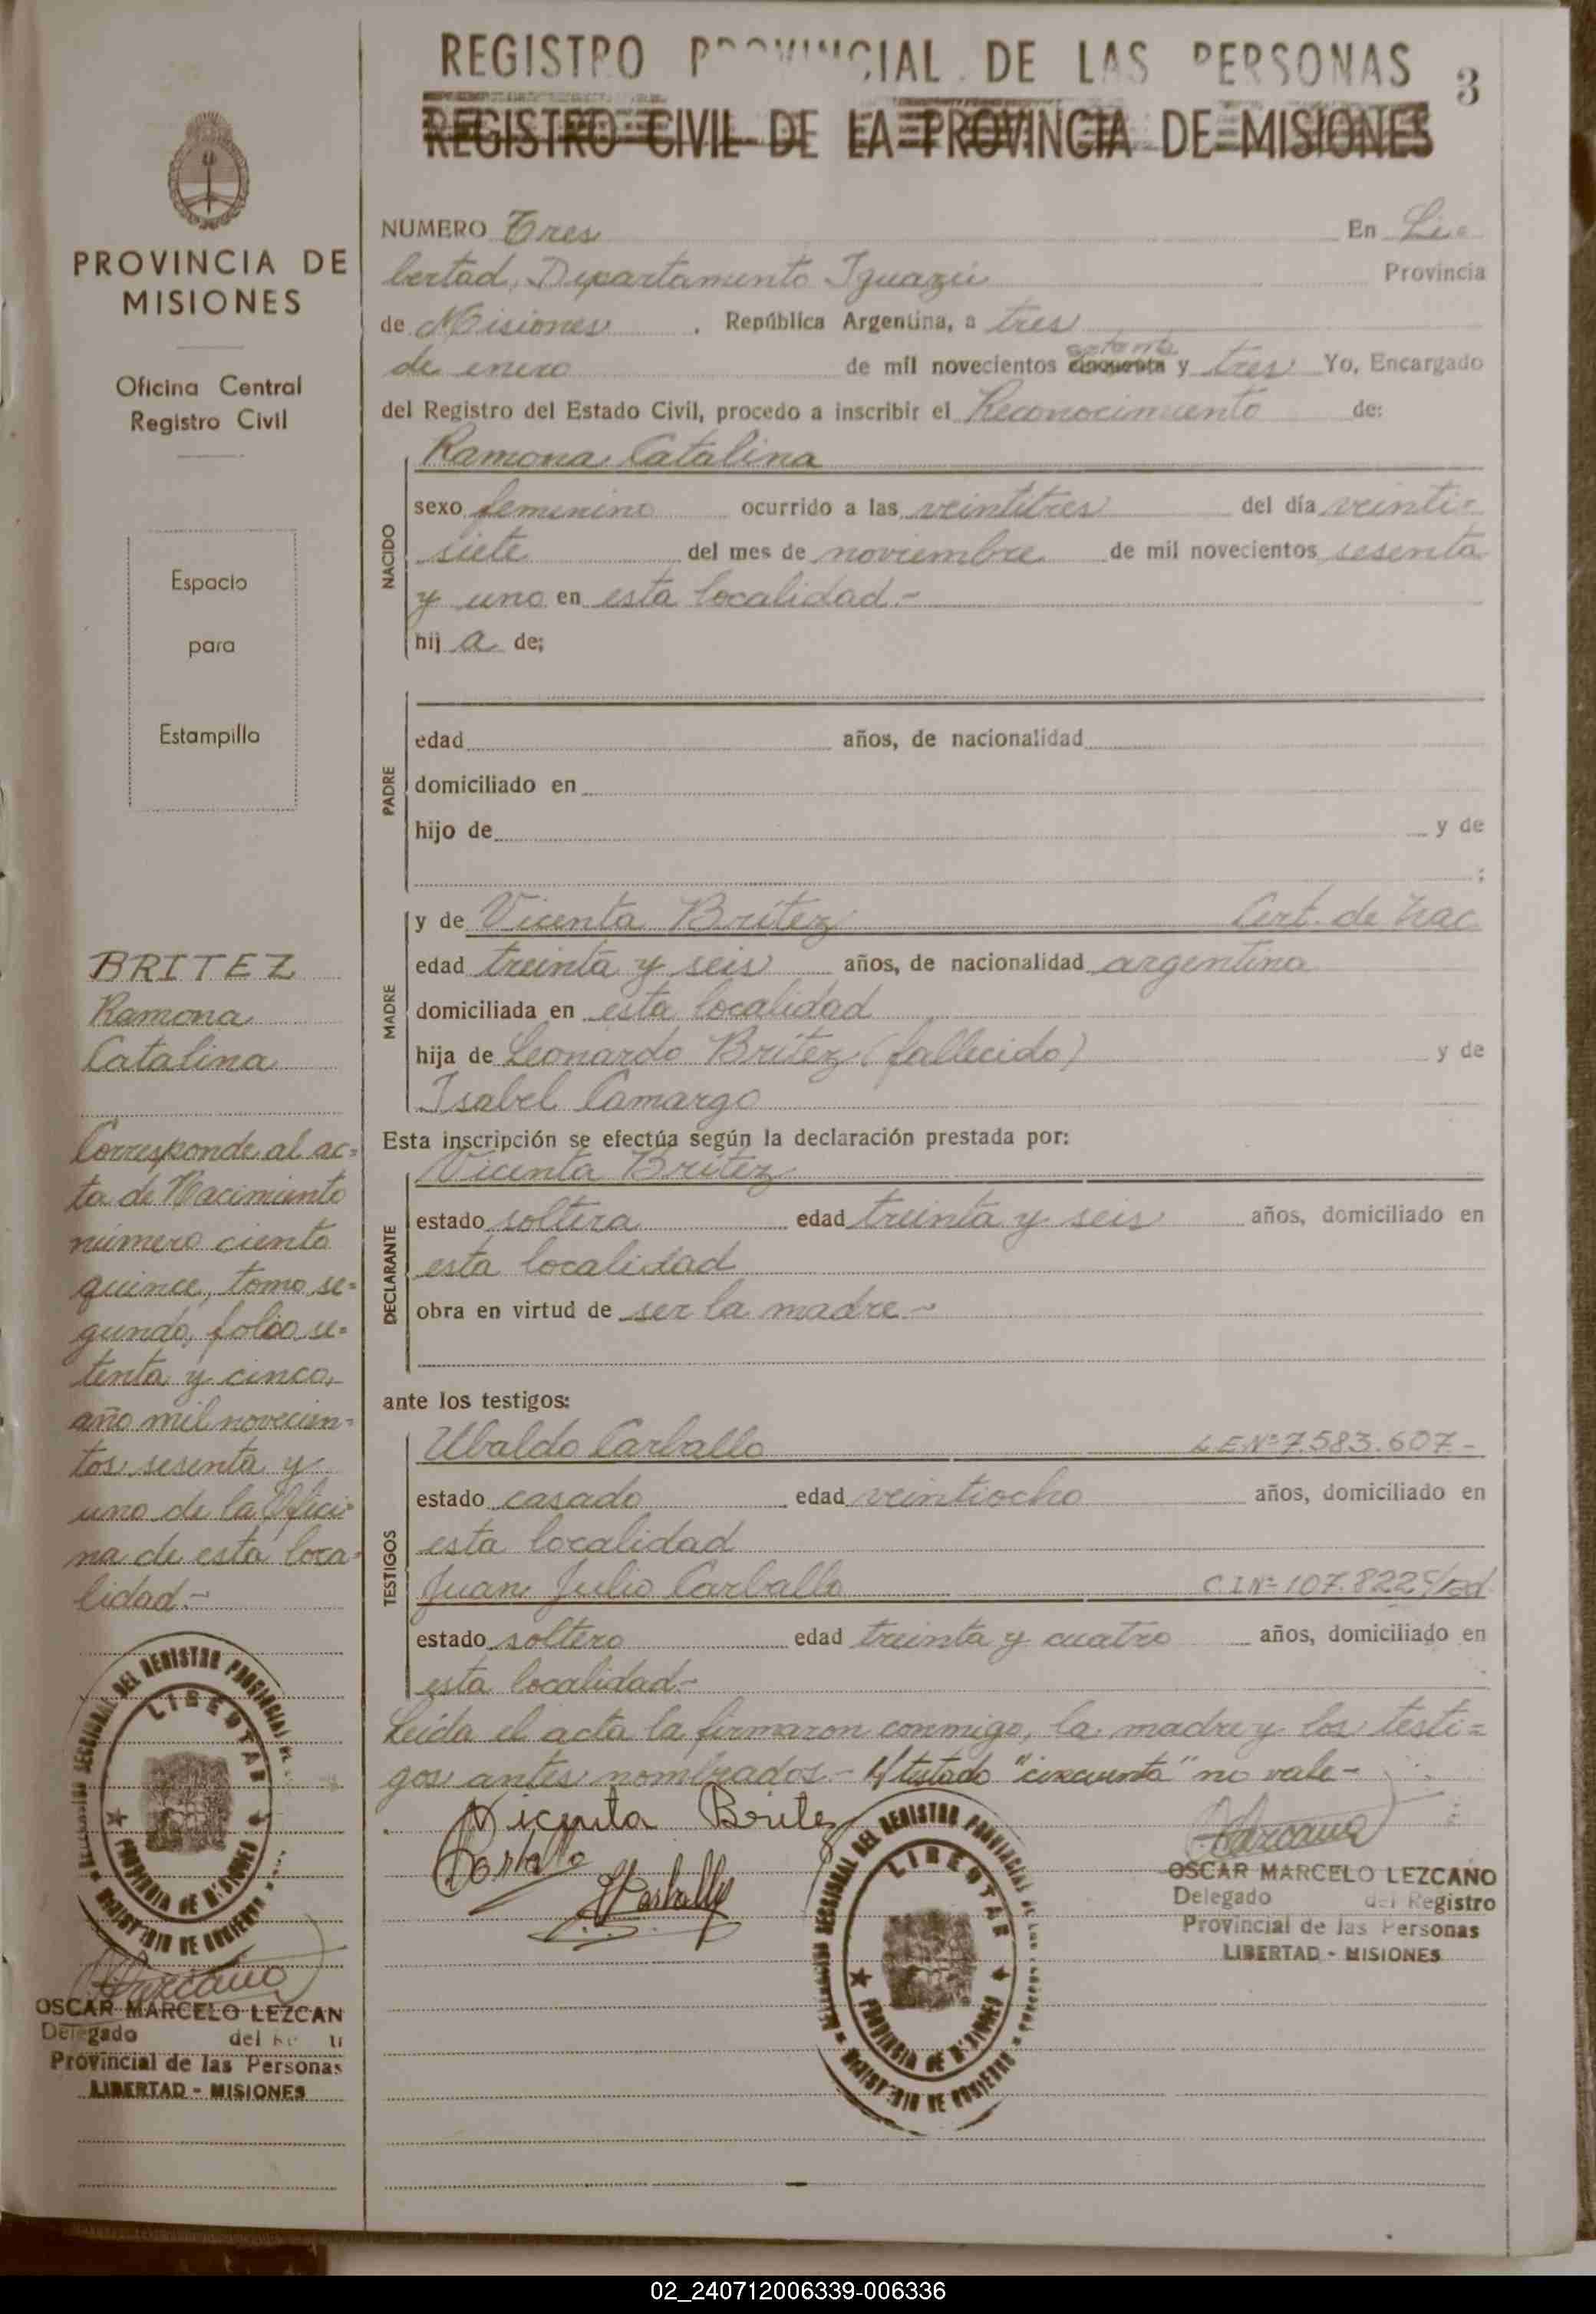 REGISTRO PROVINCIAL DE LAS PERSONAS
3
REGISTRO CIVIL DE LA PROVINCIA DE MISIONES
PROVINCIA DE
MISIONES
Oficina Central
Registro Civil
Espacio
para
Estampilla
BRITEZ
Ramona
Catalina
Corresponde al ac=
ta de Nacimiento
número ciento
quince, tomo se=
gundo, folio se=
tenta y cinco,
año mil novecien=
tos sesenta y
uno de la Ofici=
na de esta loca=
lidad.-
DEL REGISTRO PROVINCIAL DE
LIBERTAD
PROVINCIA DE MISIONES
OSCAR MARCELO LEZCAN
Delegado del
Provincial de las Personas
LIBERTAD - MISIONES
NUMERO Tres En Li=
bertad, Departamento Iguazú Provincia
de Misiones, República Argentina, a tres
de enero de mil novecientos cincuenta setenta y tres Yo, Encargado
del Registro del Estado Civil, procedo a inscribir el Reconocimiento de:
Ramona Catalina
NACIDO
sexo femenino ocurrido a las veintitres del día veinti=
siete del mes de noviembre de mil novecientos sesenta
y uno en esta localidad.-
hij a de;
PADRE
edad años, de nacionalidad
domiciliado en
hijo de y de
;
MADRE
y de Vicenta Britez Cert. de Nac
edad treinta y seis años, de nacionalidad argentina
domiciliada en esta localidad
hija de Leonardo Britez (fallecido) y de
Isabel Camargo
Esta inscripción se efectúa según la declaración prestada por:
DECLARANTE
Vicenta Britez
estado soltera edad treinta y seis años, domiciliado en
esta localidad
obra en virtud de ser la madre.-
ante los testigos:
TESTIGOS
Ubaldo Carballo L.E.Nº 7.583.607-
estado casado edad veintiocho años, domiciliado en
esta localidad
Juan Julio Carballo C.I.Nº 107.822
estado soltero edad treinta y cuatro años, domiciliado en
esta localidad.-
Leída el acta la firmaron conmigo, la madre y los testi=
gos antes nombrados.- T/tado "cincuenta" no vale-
Vicenta Britez
Carballo
Carballo
DEL REGISTRO PROVINCIAL DE LAS
LIBERTAD
PROVINCIA DE MISIONES
OSCAR MARCELO LEZCANO
Delegado del Registro
Provincial de las Personas
LIBERTAD - MISIONES
02_240712006339-006336